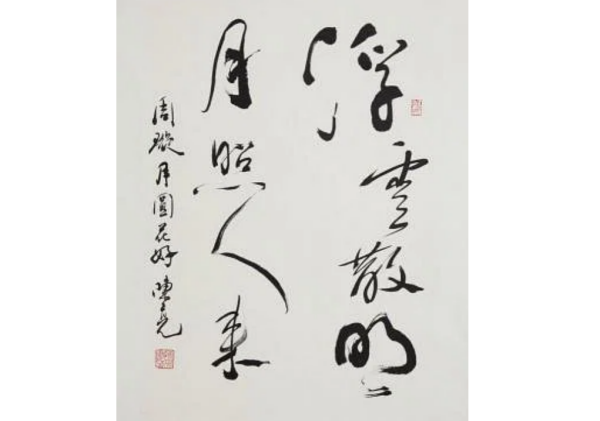 浮雲散明〻
月照人來
周璇月圓花好 陳